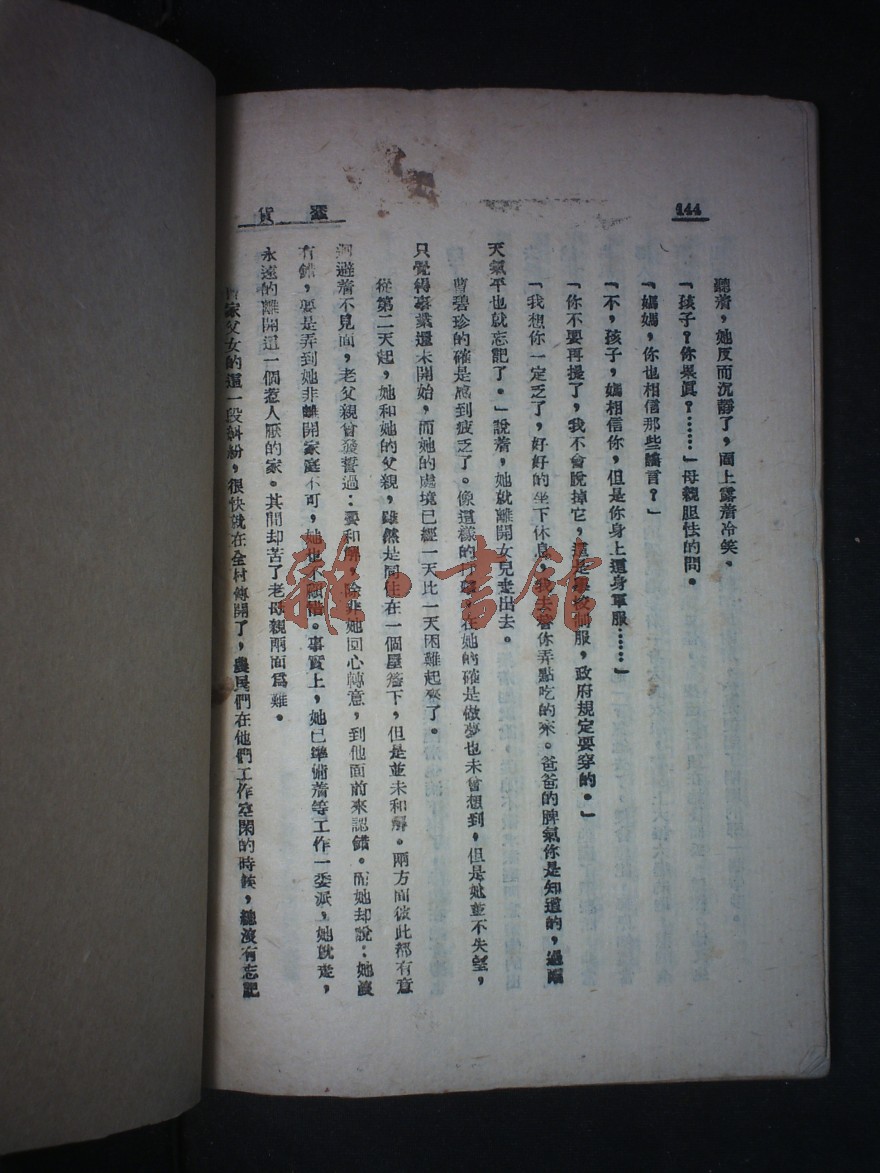 144
貨
聽着，她反而沉靜了，面上露着冷笑。
「孩子？你果眞？……」母親胆怯的問。
「媽媽，你也相信那些謠言？」
「不，孩子，媽相信你，但是你身上這身軍服……」
「你不要再提了，我不會脫掉它，這是制服，政府規定要穿的。」
「我想你一定乏了，好好的坐下休息，我去替你弄點吃的來。爸爸的脾氣你是知道的，過兩
天氣平也就忘記了。」說着，她就離開女兒走出去。
曾碧珍的確是感到疲乏了。像這樣的打擊，在她的確是做夢也未曾想到，但是她並不失望，
只覺得事業還未開始，而她的處境已經一天比一天困難起來了。
從第二天起，她和她的父親，雖然是同住在一個屋簷下，但是並未和解。兩方面彼此都有意
避着不見面，老父親曾發誓過：要和解，除非她回心轉意，到他面前來認錯。而她却說：她沒
有錯，要是弄到她非離開家庭不可，她也不顧惜。事實上，她已準備着等工作一委派，她就走，
永遠的離開這一個惹人厭的家。其間却苦了老母親兩面爲難。
家父女的這一段糾紛，很快就在全村傳開了，農民們在他們工作空閑的時候，總沒有忘記
雜·書館